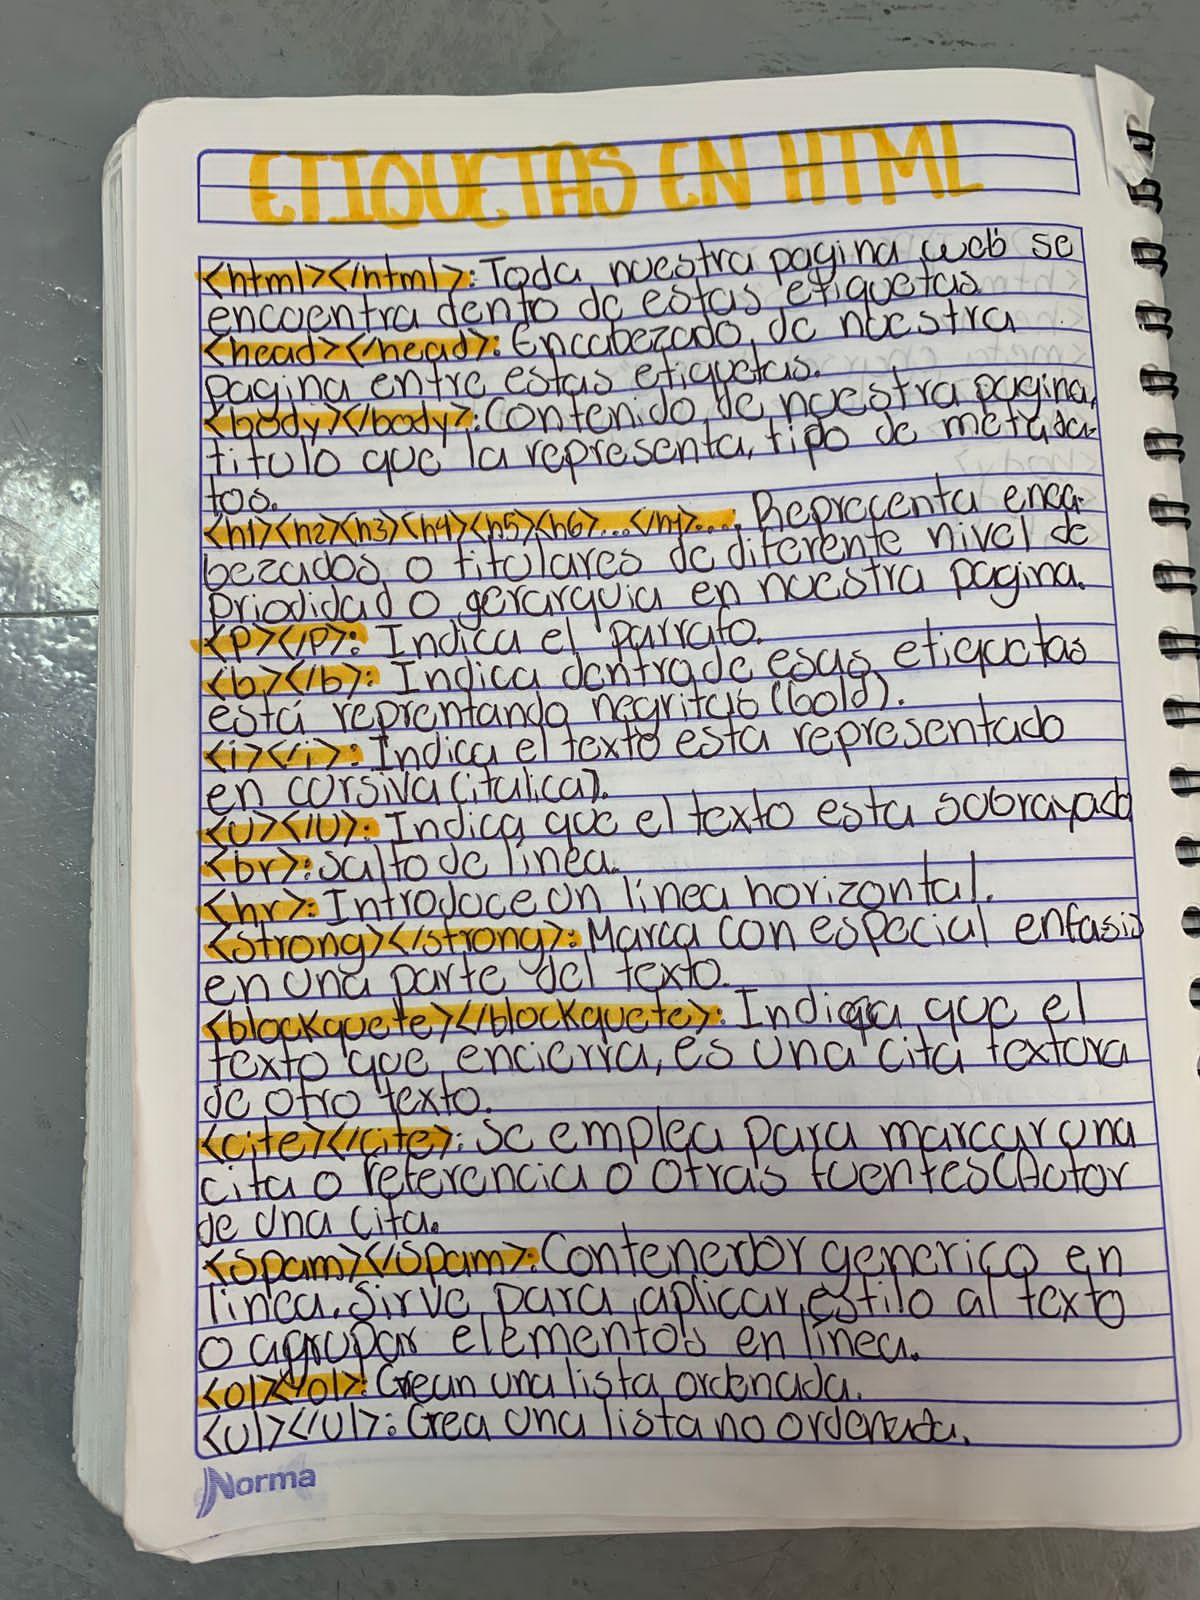 ETIQUETAS EN HTML
<html></html>: Toda nuestra pagina web se
encuentra dento de estas etiquetas
<head></head>: Encabezado de nuestra
pagina entre estas etiquetas.
<body></body>: Contenido de nuestra pagina,
titulo que la representa, tipo de metada-
tos.
<h1><h2><h3><h4><h5><h6>...</h1>...: Reprecenta enca-
bezados o titulares de diferente nivel de
priodidad o gerarquia en nuestra pagina.
<p></p>: Indica el parrafo.
<b></b>: Indica dentro de esas etiquetas
está reprentando negritas (bold).
<i></i>: Indica el texto esta representado
en cursiva (italica).
<u></u>: Indica que el texto esta sobrayado
<br>: salto de línea.
<hr>: Introduce un linea horizontal.
<strong></strong>: Marca con especial enfasis
en una parte del texto.
<blockquete></blockquete>: Indica que el
texto que encierra, es una cita textora
de otro texto.
<cite></cite>: Se emplea para marcar una
cita o referencia o otras fuentes (Autor
de una cita.
<spam></spam>: Contenedor generico en
linea. Sirve para aplicar estilo al texto
o agrupar elementos en línea.
<ol></ol>: Crean una lista ordenada.
<ul></ul>: Crea una lista no ordenada.
Norma